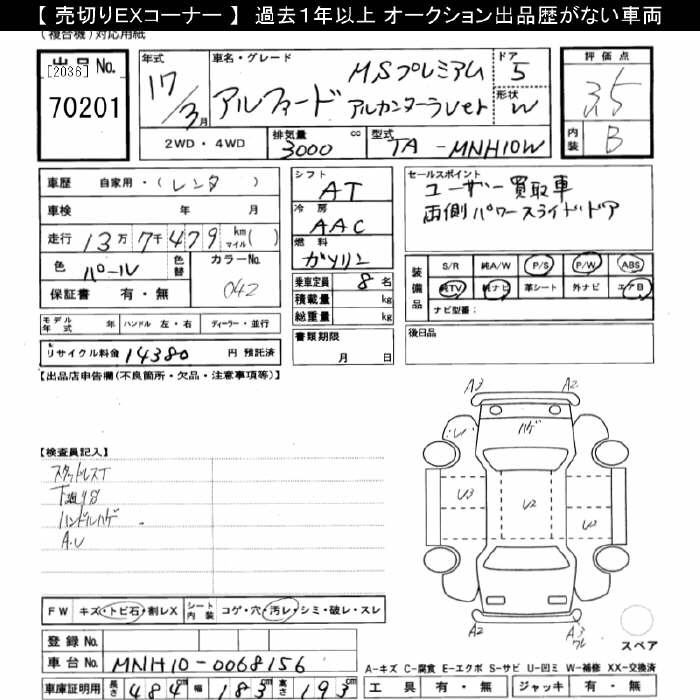 【 売切りEXコーナー 】 過去１年以上 オークション出品歴がない車両
(複合機)対応用紙
出品No.
[2036]
70201
年式
17/3月
車名・グレード
アルファード
MSプレミアム
アルカンターラver
ドア
5
形状
W
評価点
3.5
内装
B
2WD・4WD
排気量
3000
cc
型式
TA - MNH10W
車歴 自家用・(レンタ)
車検 年 月
走行 13万7千479 km マイル( )
色 パール
色替
カラーNo.
042
保証書 有・無
モデル年式 年 ハンドル 左・右 ディーラー・並行
リサイクル料金 14380 円 預託済
シフト
AT
冷房
AAC
燃料
ガソリン
乗車定員 8 名
積載量 kg
総重量 kg
書類期限
月 日
セールスポイント
ユーザー買取車
両側パワースライドドア
装備品
S/R 純A/W P/S P/W ABS
純TV 純ナビ 革シート 外ナビ エアB
ナビ型番:
後日品
【出品店申告欄(不良箇所・欠品・注意事項等)】
【検査員記入】
スタッドレスT
ハンドルハゲ
A.U
A3
A2
ハゲ
U3
U2
A2
A3
スペア
FW キズ・トビ石・割レX
シート内装 コゲ・穴・汚レ・シミ・破レ・スレ
登録No.
車台No. MNH10-0068156
車庫証明用 長さ 484 cm 幅 183 cm 高さ 193 cm
A-キズ C-腐食 E-エクボ S-サビ U-凹ミ W-補修 XX-交換済
工具 有・無 ジャッキ 有・無